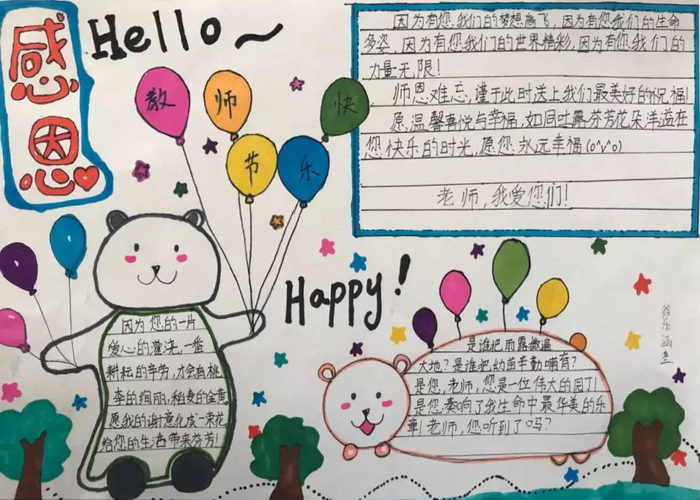 感恩
Hello~
教师节快乐
因为有您,我们的梦想高飞,因为有您我们的生命
多姿,因为有您我们的世界精彩,因为有您我们的
力量无限!
师恩难忘,谨于此时送上我们最美好的祝福!
愿温馨喜悦与幸福,如同吐露芬芳花朵洋溢在
您快乐的时光,愿您永远幸福(o^v^o)
老师,我爱您们!
Happy!
因为您的一片
爱心的灌浇,一番
耕耘的辛劳,才会有桃
李的绚丽,稻麦的金黄
愿我的谢意化成一束花
给您的生活带来芬芳!
是谁把雨露撒遍
大地?是谁把幼苗辛勤哺育?
是您,老师,您是一位伟大的园丁!
是您奏响了我生命中最华美的乐
章!老师,您听到了吗?